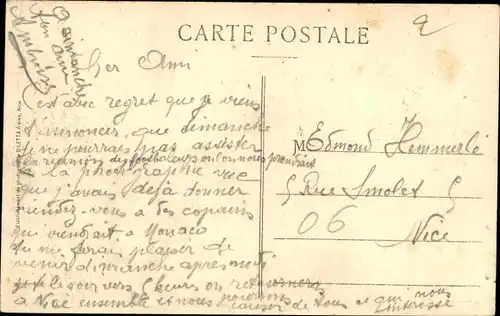 CARTE POSTALE
Dimanche
Ton ami
Cher Ami
C'est avec regret que je viens
t'annoncer, que dimanche
je ne pourrais pas assister
à la réunion des footbaleurs où l'on nous prendrait
à la photographie vu
que j'avais déjà donner
rendez-vous a des copains
qui viendrait a Monaco
tu me ferais plaisir de
venir dimanche après midi
et le soir vers 5 heures on retournera
à Nice ensemble et nous pourrons
causer de tous ce qui nous
intéresse
M Edmond Hemmerlé
5 Rue Smolet 5
06 Nice